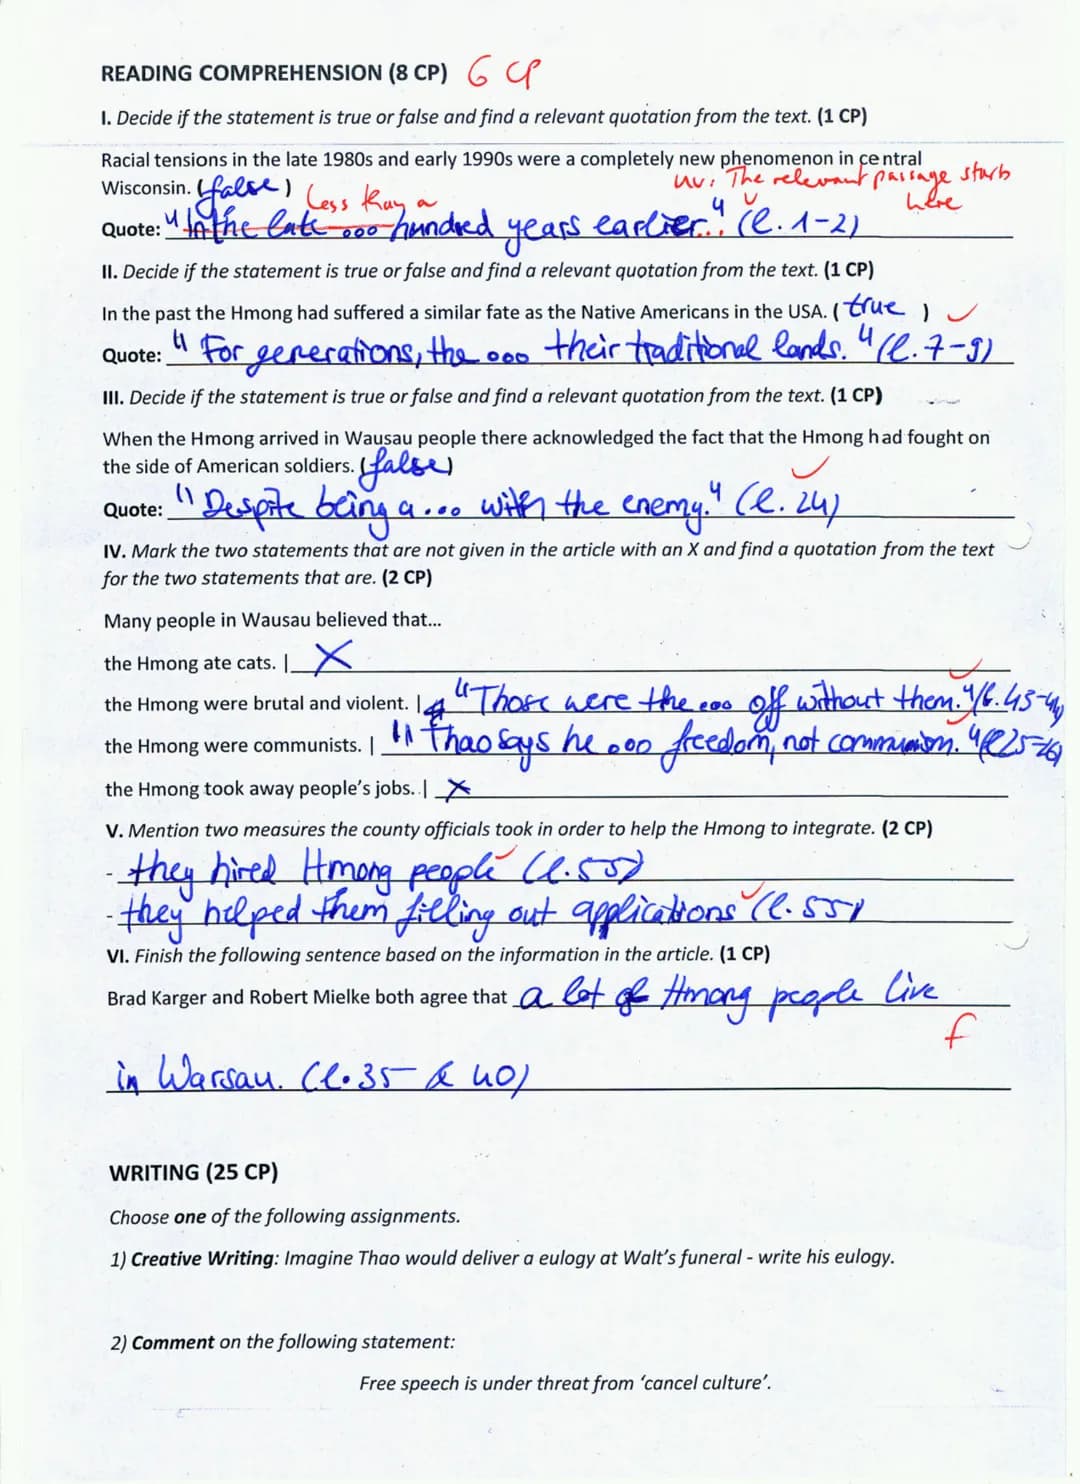 READING COMPREHENSION (8 CP) 6 CP
I. Decide if the statement is true or false and find a relevant quotation from the text. (1 CP)
Racial tensions in the late 1980s and early 1990s were a completely new phenomenon in central
Wisconsin. (false) Less than a uv: The relevant passage starts here
Quote: "In the late ... hundred years earlier." (l. 1-2)
II. Decide if the statement is true or false and find a relevant quotation from the text. (1 CP)
In the past the Hmong had suffered a similar fate as the Native Americans in the USA. (true)
Quote: "For generations, the ... their traditional lands." (l. 7-9)
III. Decide if the statement is true or false and find a relevant quotation from the text. (1 CP)
When the Hmong arrived in Wausau people there acknowledged the fact that the Hmong had fought on
the side of American soldiers. (false)
Quote: "Despite being a ... with the enemy." (l. 24)
IV. Mark the two statements that are not given in the article with an X and find a quotation from the text
for the two statements that are. (2 CP)
Many people in Wausau believed that...
the Hmong ate cats. | X
the Hmong were brutal and violent. | "Those were the ... off without them."
the Hmong were communists. | "Thao says he ... freedom, not communism." (l. 25-26)
the Hmong took away people's jobs. | X
V. Mention two measures the county officials took in order to help the Hmong to integrate. (2 CP)
- they hired Hmong people (l. 55)
- they helped them filling out applications (l. 55)
VI. Finish the following sentence based on the information in the article. (1 CP)
Brad Karger and Robert Mielke both agree that a lot of Hmong people live
f
in Warsau. (l. 35 & 40)
WRITING (25 CP)
Choose one of the following assignments.
1) Creative Writing: Imagine Thao would deliver a eulogy at Walt's funeral - write his eulogy.
2) Comment on the following statement:
Free speech is under threat from 'cancel culture'.